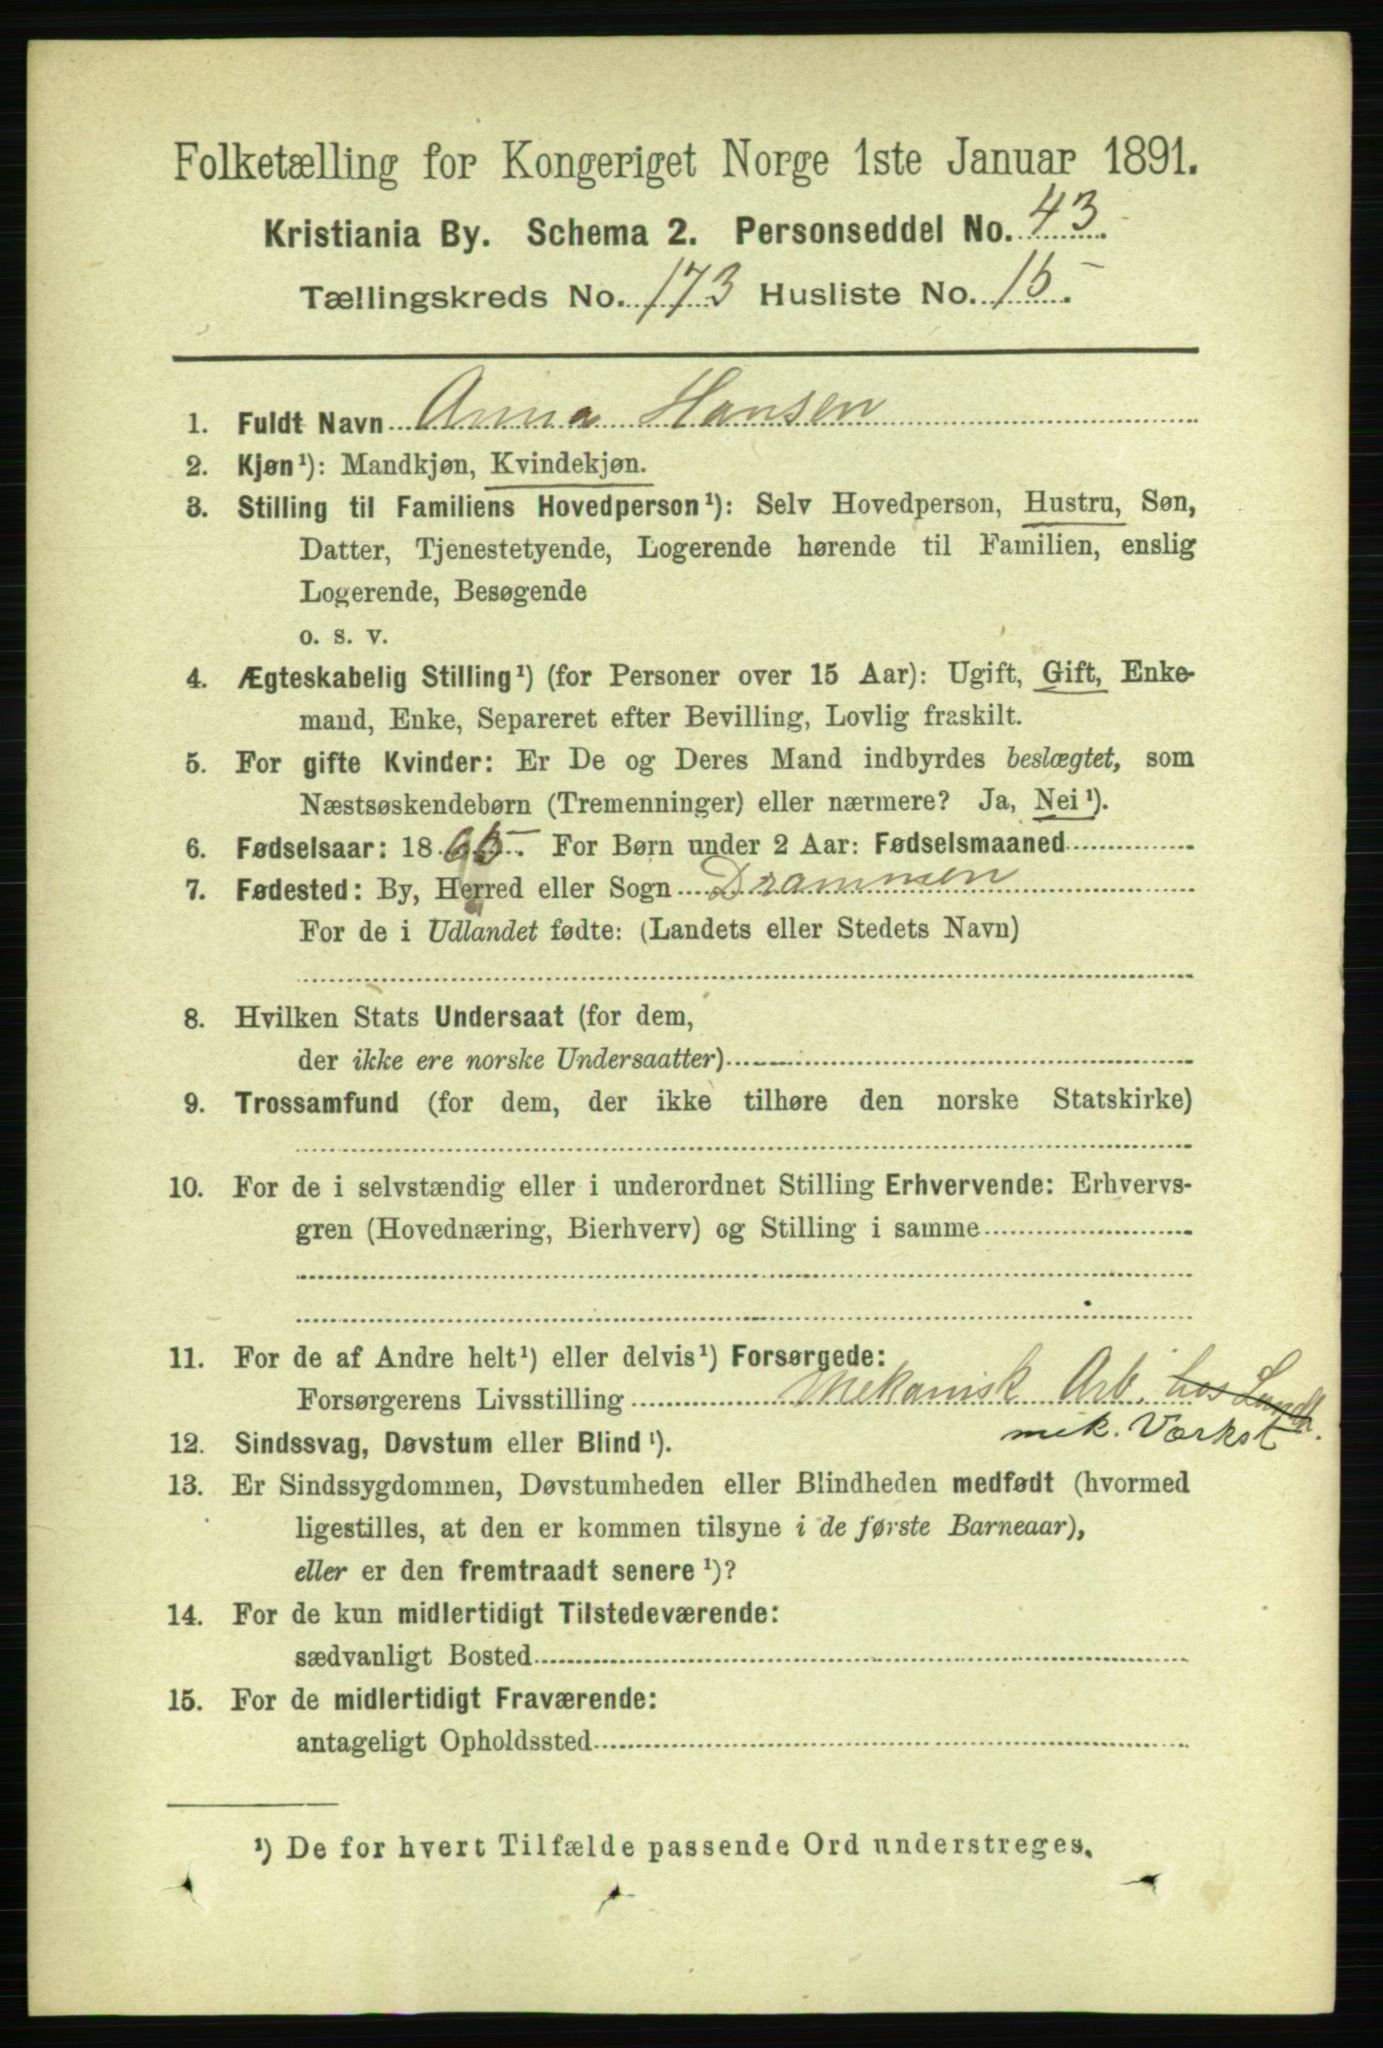 Folketælling for Kongeriget Norge 1ste Januar 1891.
Kristiania By. Schema 2. Personseddel No. 43.
Tællingskreds No. 173 Husliste No. 15.
1. Fuldt Navn Anna Hansen
2. Kjøn¹): Mandkjøn, Kvindekjøn.
3. Stilling til Familiens Hovedperson¹): Selv Hovedperson, Hustru, Søn,
Datter, Tjenestetyende, Logerende hørende til Familien, enslig
Logerende, Besøgende
o. s. v.
4. Ægteskabelig Stilling¹) (for Personer over 15 Aar): Ugift, Gift, Enke-
mand, Enke, Separeret efter Bevilling, Lovlig fraskilt.
5. For gifte Kvinder: Er De og Deres Mand indbyrdes beslægtet, som
Næstsøskendebørn (Tremenninger) eller nærmere? Ja, Nei¹).
6. Fødselsaar: 1865. For Børn under 2 Aar: Fødselsmaaned
7. Fødested: By, Herred eller Sogn Drammen
For de i Udlandet fødte: (Landets eller Stedets Navn)
8. Hvilken Stats Undersaat (for dem,
der ikke ere norske Undersaatter)
9. Trossamfund (for dem, der ikke tilhøre den norske Statskirke)
10. For de i selvstændig eller i underordnet Stilling Erhvervende: Erhvervs-
gren (Hovednæring, Bierhverv) og Stilling i samme
11. For de af Andre helt¹) eller delvis¹) Forsørgede:
Forsørgerens Livsstilling Mekanisk Arb. hos
mek. Værkst.
12. Sindssvag, Døvstum eller Blind¹).
13. Er Sindssygdommen, Døvstumheden eller Blindheden medfødt (hvormed
ligestilles, at den er kommen tilsyne i de første Barneaar),
eller er den fremtraadt senere¹)?
14. For de kun midlertidigt Tilstedeværende:
sædvanligt Bosted
15. For de midlertidigt Fraværende:
antageligt Opholdssted
¹) De for hvert Tilfælde passende Ord understreges.